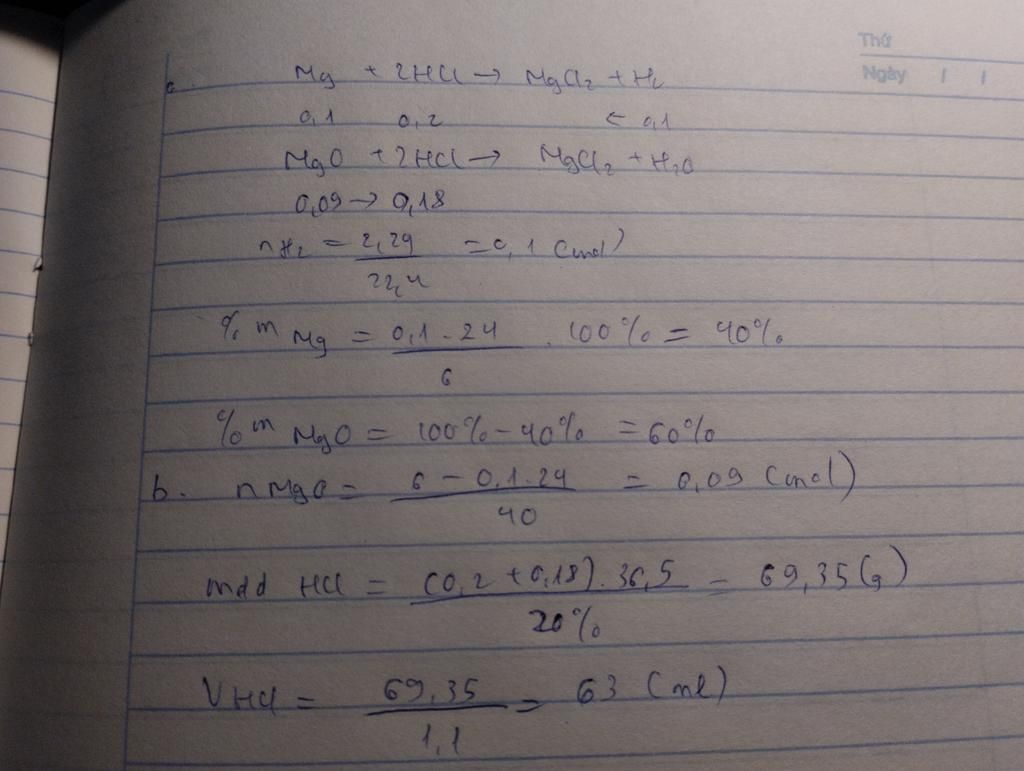 Thứ
Ngày / /
a. Mg + 2HCl → MgCl₂ + H₂
0,1 0,2 ← 0,1
MgO + 2HCl → MgCl₂ + H₂O
0,09 → 0,18
nH₂ = 2,24 / 22,4 = 0,1 (mol)
% m Mg = 0,1 . 24 / 6 . 100% = 40%
% m MgO = 100% - 40% = 60%
b. nMgO = 6 - 0,1.24 / 40 = 0,09 (mol)
mdd HCl = (0,2 + 0,18) . 36,5 / 20% = 69,35 (g)
VHCl = 69,35 / 1,1 = 63 (ml)